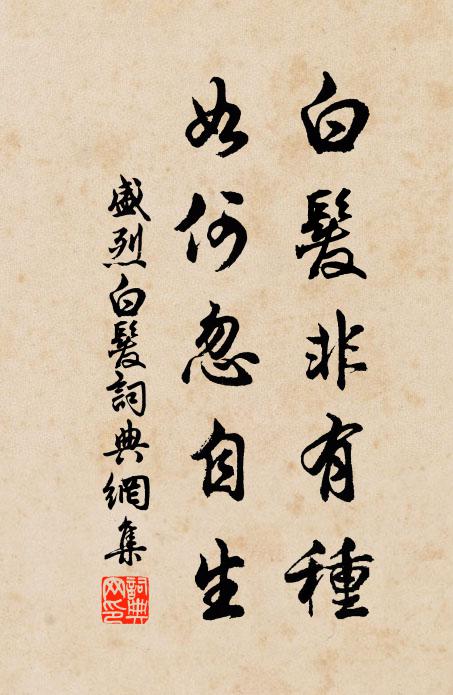 白髮非有種
如何忽自生
盛烈白髮詞典網集
詞典
網印